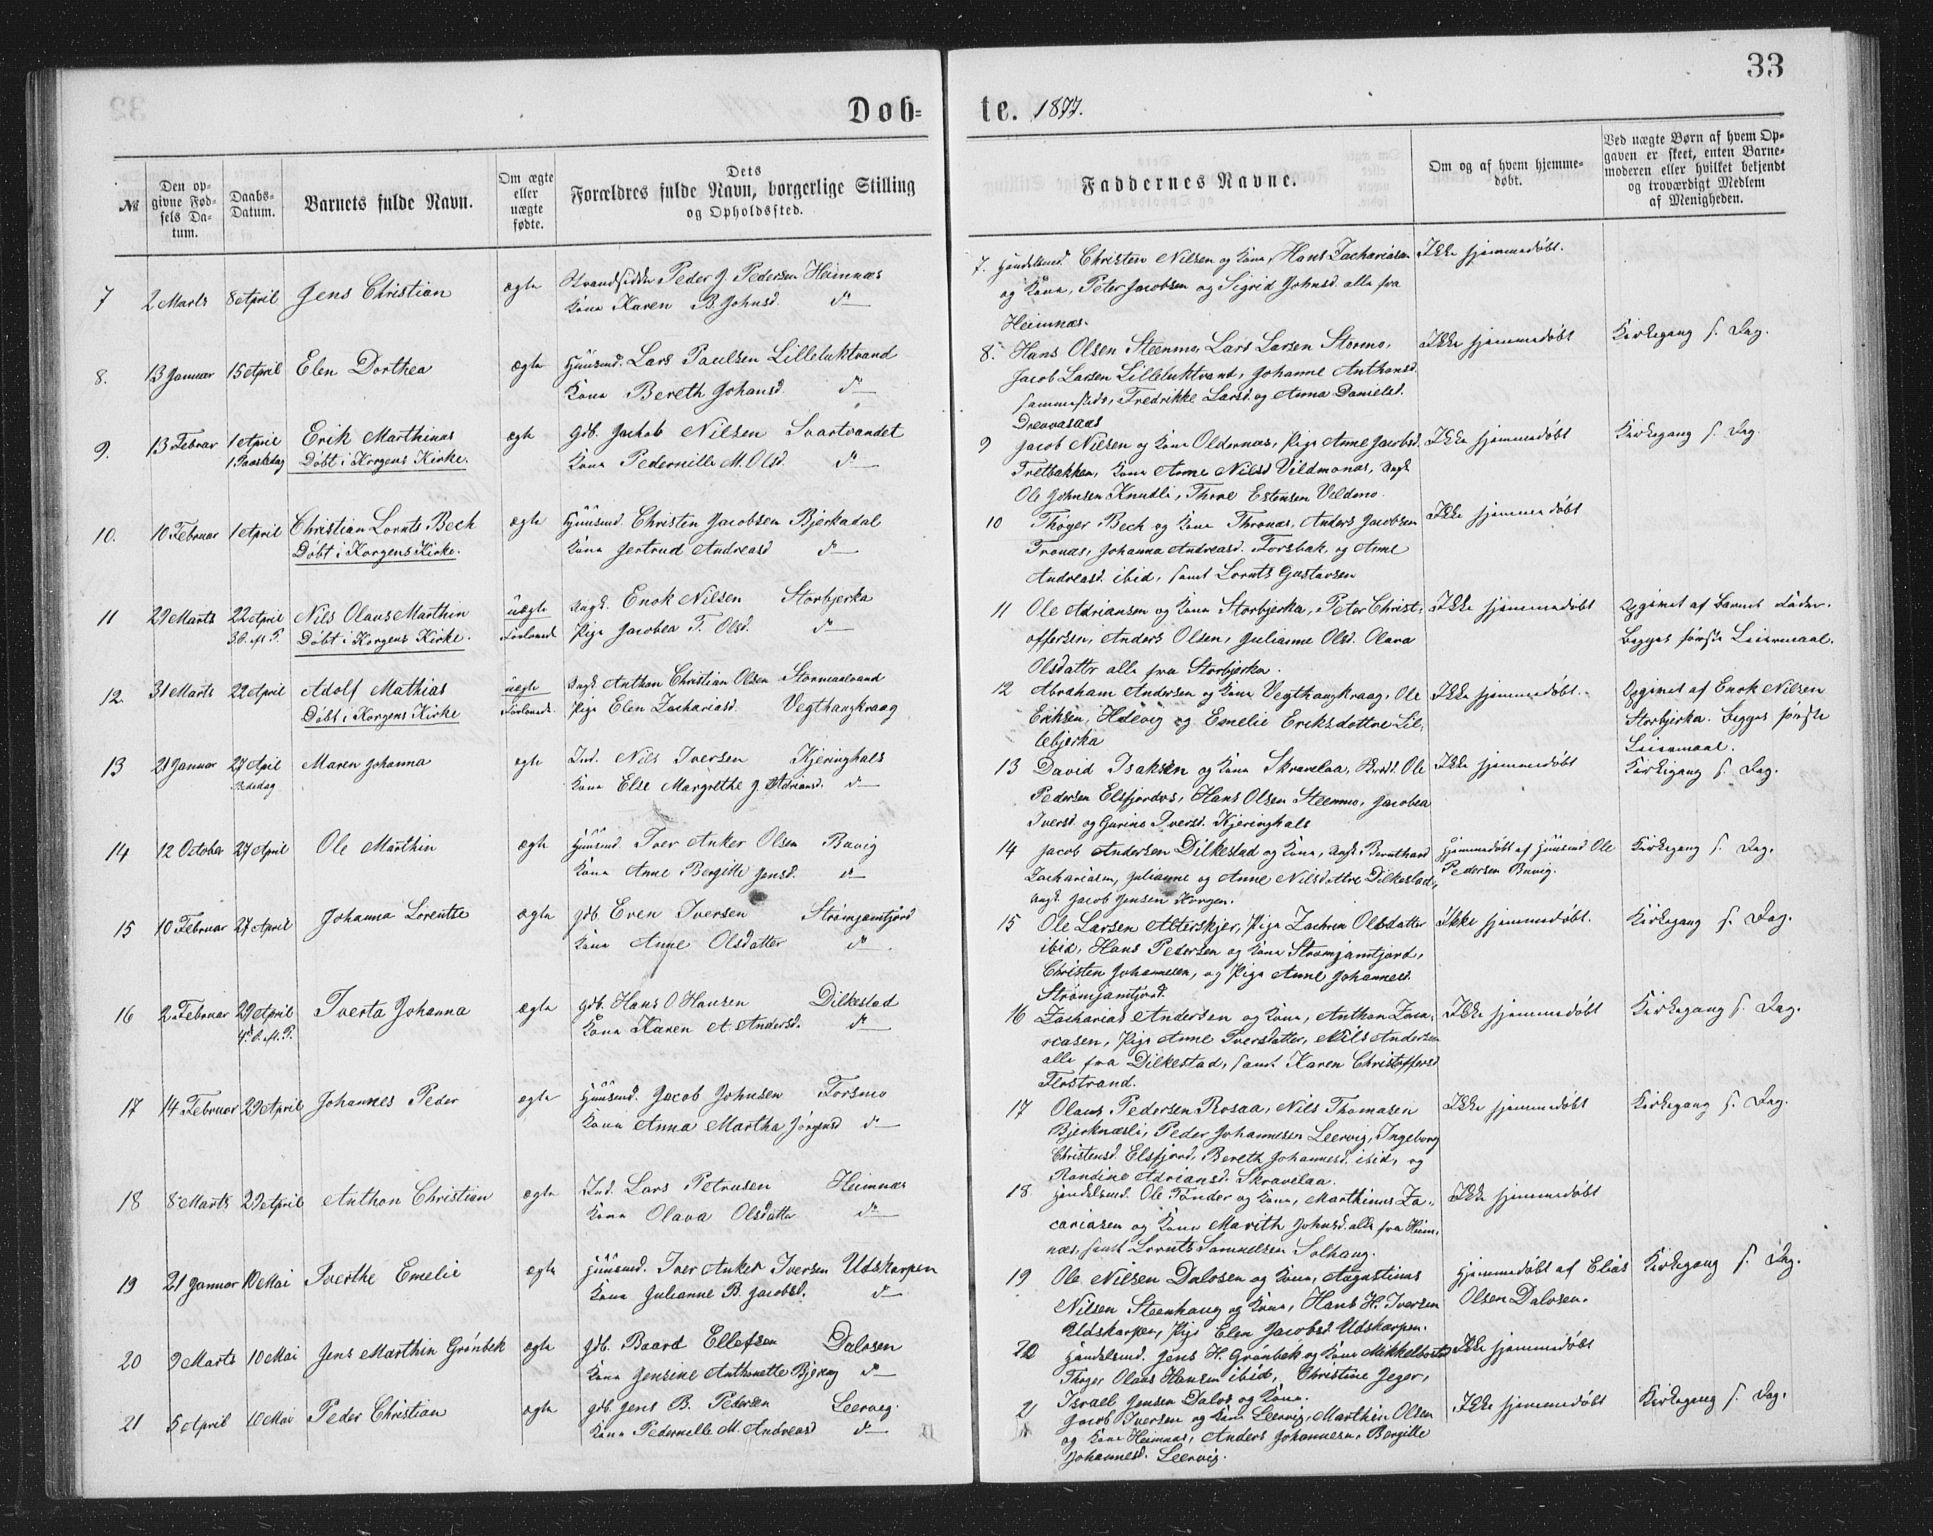 33
Døb=
te. 1877.
№
Den op-
givne Fød-
sels Da-
tum.
Daabs-
Datum.
Barnets fulde Navn.
Om ægte
eller
uægte
fødte.
Dets
Forældres fulde Navn, borgerlige Stilling
og Opholdssted.
Faddernes Navne.
Om og af hvem hjemme-
døbt.
Ved uægte Børn af hvem Op-
gaven er skeet, enten Barne-
moderen eller hvilket bekjendt
og troværdigt Medlem
af Menigheden.
7 2 Marts 8 April Jens Christian ægte Strandsidder Peder J Pedersen Heimnæs
Kone Karen B. Johnsd. do
8. 13 Januar 15 April Elen Dorthea ægte Huusmd. Lars Paulsen Lilleluktvand
Kone Bereth Johansd. do
9. 13 Februar 1 April Erik Marthinus ægte Gdb. Jachob Nilsen Svartvandet
1 Paaskedag Døbt i Korgens Kirke. Kone Pedernille M. Olsd. do
10. 10 Februar 1 April Christian Lornts Bech ægte Huusmd. Christen Jacobsen Bjerkadal
Døbt i Korgens Kirke. Kone Gertrud Andreasd do
11 29 Marts 22 April Nils Olaus Marthin uægte Ungk. Enok Nilsen Storbjerka
3 S. eft. P. Døbt i Korgens Kirke. Forlovede Pige Jacobea T. Olsd. do
12. 31 Marts 22 April Adolf Mathias uægte Ungk. Anthon Christian Olsen Stormaalvand
Døbt i Korgens Kirke Forlovede. Pige Elen Zachariasd. Vegthaugkraag
13 21 Januar 27 April Maren Johanna ægte Ind. Nils Iversen Kjeringhals
Bededag Kone Else Margrethe J. Adriansd. do
14 12 October 27 April Ole Marthin ægte Huusmd. Iver Anker Olsen Buvig
Kone Anne Bergitte Jensd. do
15 10 Februar 27 April Johanna Lorentse ægte Gdb. Even Iversen Strømjamtjord
Kone Anne Olsdatter do
16 2 Februar 29 April Iverta Johanna ægte Gdb. Hans O. Hansen Dilkestad
4 S. eft. P. Kone Karen A. Andersd. do
17 14 Februar 29 April Johannes Peder ægte Huusmd. Jacob Johnsen Forsmo
Kone Anna Martha Jörgensd do
18 8 Marts 29 April Anthon Christian ægte Ind. Lars Petrusen Heimnæs
Kone Olava Olsdatter do
19 21 Januar 10 Mai Iverthe Emelie ægte Huusmd. Iver Anker Iversen Udskarpen
Kone Julianne B. Jacobsd. do
20 9 Marts 10 Mai Jens Marthin Grønbek ægte Gdb. Baard Ellefsen Dalosen
Kone Jensine Anthonette Bjering do
21 5 April 10 Mai Peder Christian ægte Gdb. Jens B. Pedersen Leervig.
Kone Pedernelle M. Andreasd do
7. Handelsmd. Christen Nilsen og Kone, Hans Zachariasen Ikke hjemmedøbt.
og Kone, Peter Jacobsen og Sigrid Johnsd. alle fra
Heimnæs.
8. Hans Olsen Steenmo, Lars Larsen Stormo, Ikke hjemmedøbt Kirkegang s. Dag.
Jacob Larsen Lilleluktvand, Johanne Anthonsd.
sammesteds, Fredrikke Larsd. og Anna Danielsd.
Drevvasaas
9 Jacob Nilsen og Kone Oldernæs, Pige Anne Jacobsd. Ikke hjemmedøbt Kirkegang s. Dag.
Tretbakken, Kone Anne Nilsd Vildmones, Ungk
Ole Johnsen Knudli, Thore Estensen Veldmo.
10 Thøger Bech og Kone Thronæs, Anders Jacobsen Ikke hjemmedøbt
Tronæs, Johanna Andreasd. Forsbak, og Anne
Andreasd. ibid, samt Lornts Gustavsen
11 Ole Adriansen og Kone Storbjerka, Peter Christ- Ikke hjemmedøbt Opgivet af Barnets Fader.
offersen, Anders Olsen, Julianne Olsd. Olava Begges første Leiermaal.
Olsdattr alle fra Storbjerka.
12 Abraham Andersen og Kone Vegthaugkraag, Ole Ikke hjemmedøbt. Opgivet af Enok Nilsen
Eriksen, Hdevig og Emelie Eriksdøttre Lil- Storbjerka. Begges første
lebjerka Leiermaal.
13 David Isaksen og Kone Skravelaa, Ole Ikke hjemmedøbt Kirkegang s. Dag.
Pedersen Elsfjordos, Hans Olsen Steenmo, Jacobea
Iversd. og Gurine Iversd. Kjeringhals
14 Jacob Andersen Dilkestad og Kone, Ungk. Bernthard Hjemmedøbt af Huusmd Ole Kirkegang s. Dag.
Zachariasen, Julianne og Anne Nilsdøttre Dilkestad, Pedersen Buvig.
Ungk. Jacob Jensen Korgen.
15 Ole Larsen Alterskjer, Pige Zachren Olsdatter Ikke hjemmedøbt. Kirkegang s. Dag.
ibid, Hans Pedersen og Kone Strømjamtjord,
Christen Johannesen, og Pige Anne Johannesd.
Strømjamtjord.
16 Zacharias Andersen og Kone, Anthon Zaca- Ikke hjemmedøbt Kirkegang s. Dag.
riasen, Pige Anne Iversdatter, Nils Andersen
alle fra Dilkestad, samt Karen Christoffersd
Flostrand.
17 Olaus Pedersen Rosaa, Nils Thomasen Ikke hjemmedøbt Kirkegang s. Dag.
Bjerknæsli, Peder Johannesen Leervig, Ingeborg
Christensd. Elsfjord, Bereth Johannesd. ibid, og
Randine Adriansd. Skravelaa.
18 Handelsmd. Ole Tønder og Kone, Marthinus Za- Ikke hjemmedøbt
cariasen og Kone Marith Johnsd. alle fra Heim-
næs, samt Lornts Samuelsen Solhaug.
19 Ole Nilsen Dalosen og Kone, Augustinus Hjemmedøbt af Elias Kirkegang s. Dag.
Nilsen Steenhaug og Kone, Hans H. Iversen Olsen Dalosen.
Udskarpen, Pige Elen Jacobsd Udskarpen.
20 Handelsmd. Jens H. Grønbek og Kone Mikkelbostad Ikke hjemmedøbt
Thoger Olaus Hansen ibid, Christine Jeger,
Israel Jensen Dalos og Kone.
21 Jacob Iversen og Kone Leervig, Marthin Olsen Ikke hjemmedøbt Kirkegang s. Dag.
og Kone Heimnæs, Anders Johannesen, Bergitte
Johannesd. Leervig.